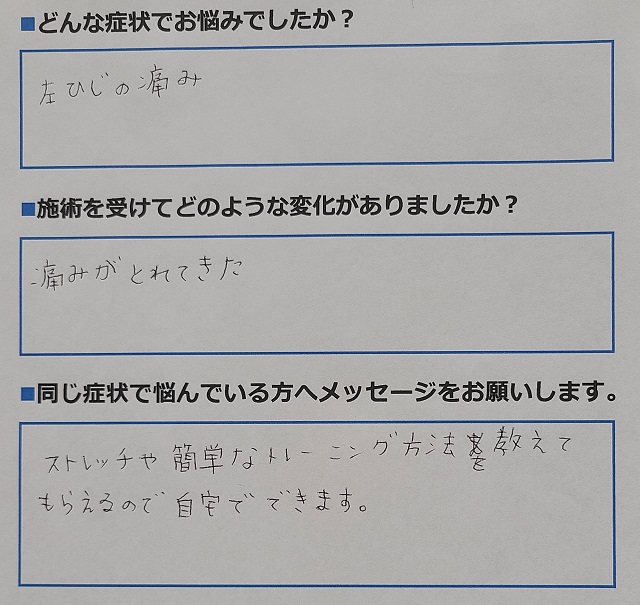 ■どんな症状でお悩みでしたか？
左ひじの痛み
■施術を受けてどのような変化がありましたか？
痛みがとれてきた
■同じ症状で悩んでいる方へメッセージをお願いします。
ストレッチや簡単なトレーニング方法を教えて
もらえるので自宅でできます。